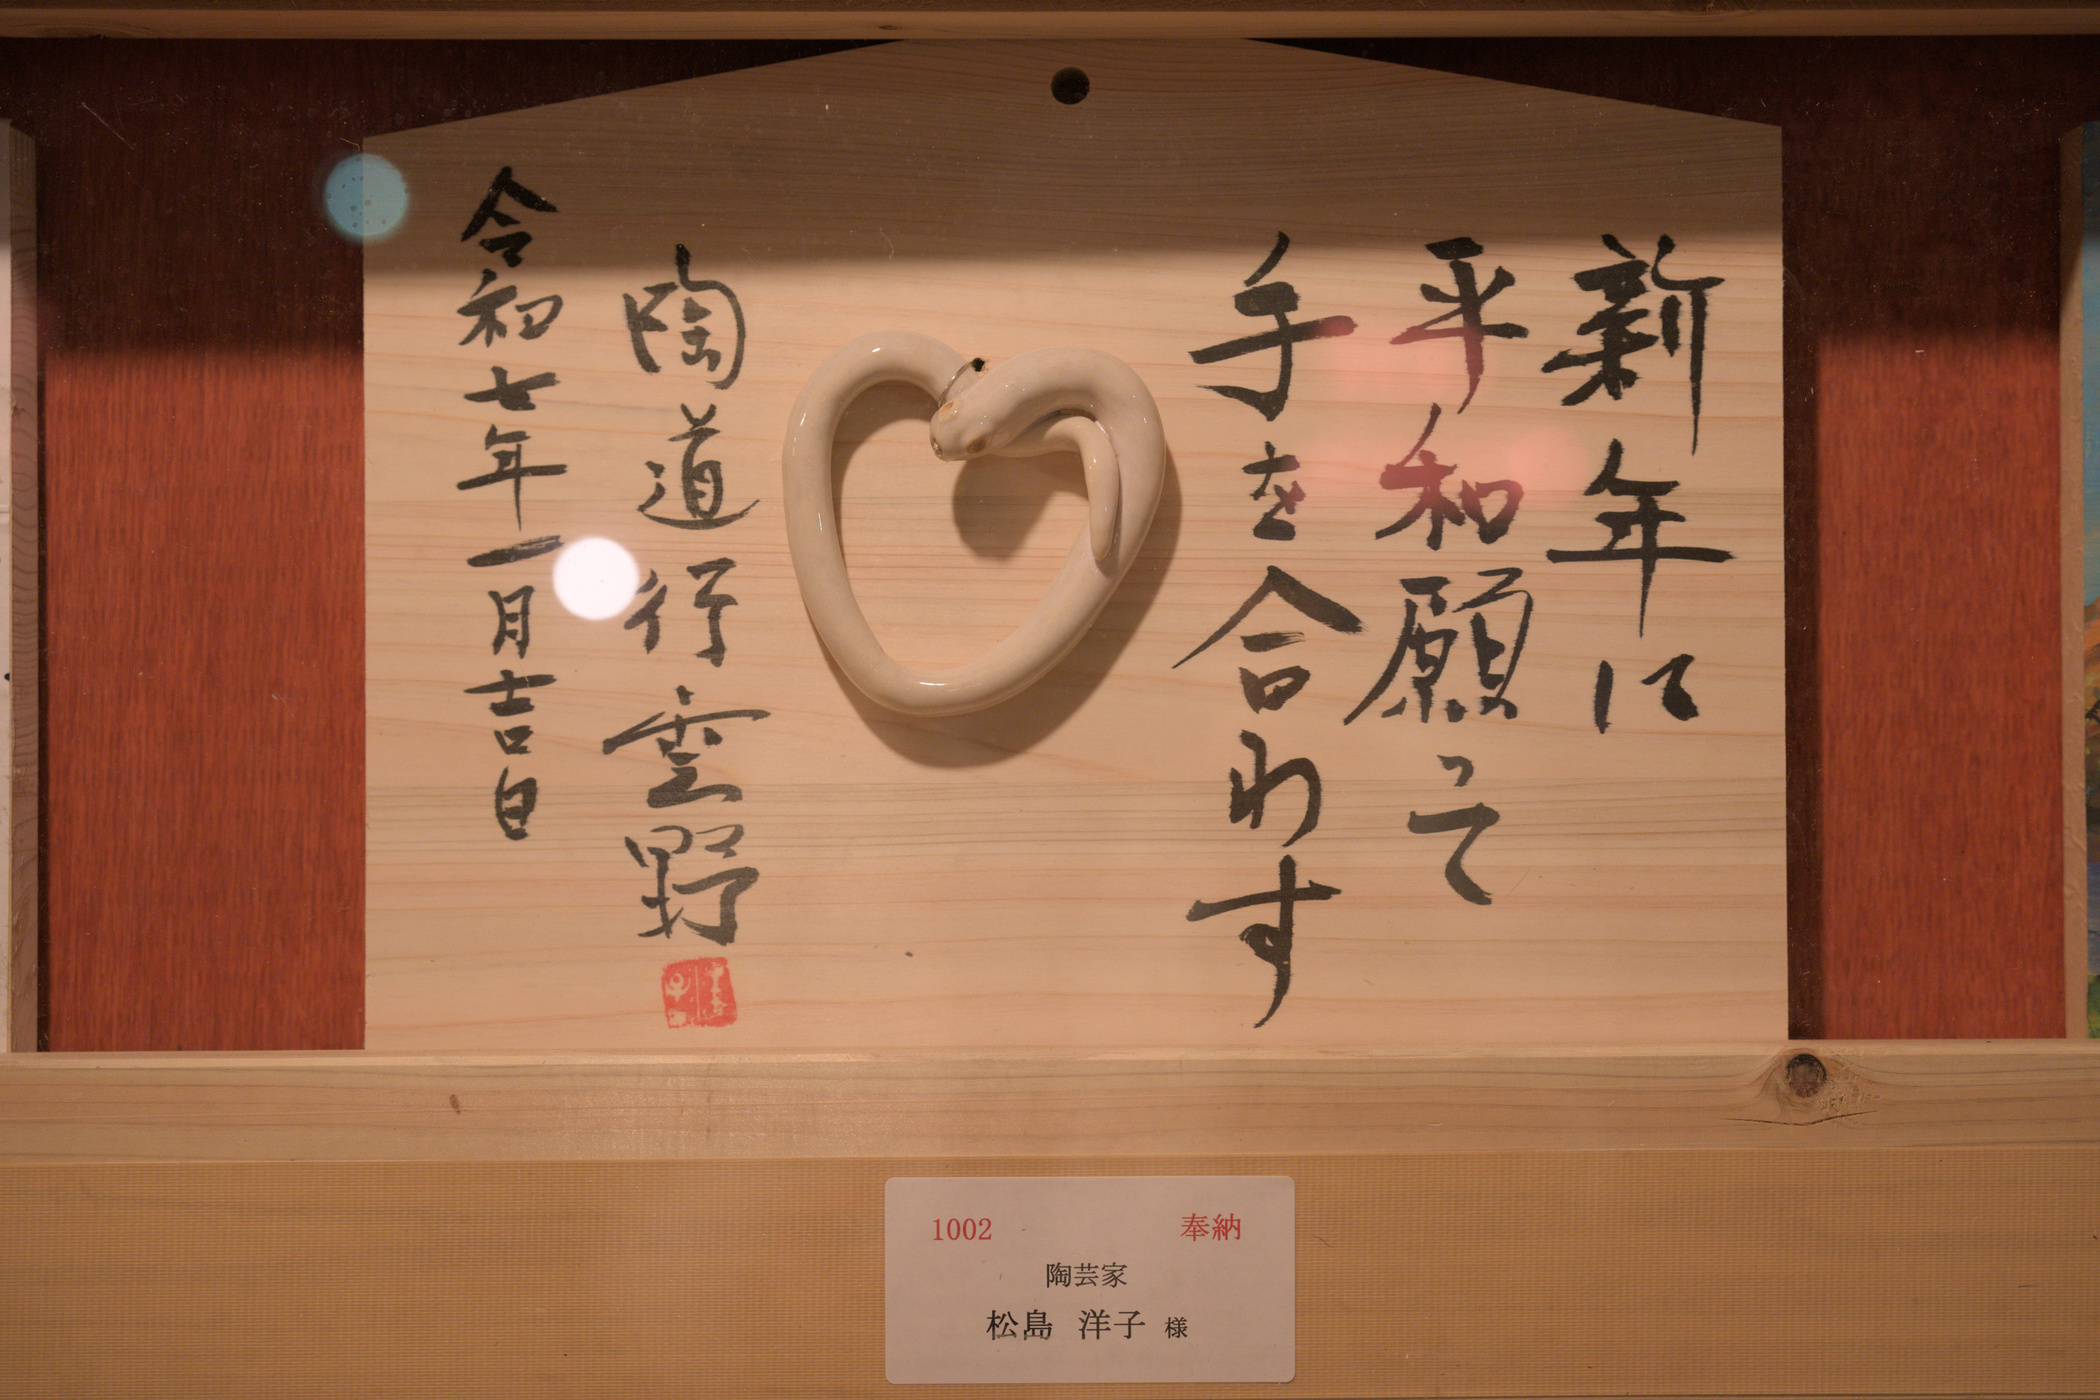 新年に
平和願って
手を合わす
陶道行雲野
令和七年一月吉日
1002 奉納
陶芸家
松島 洋子 様